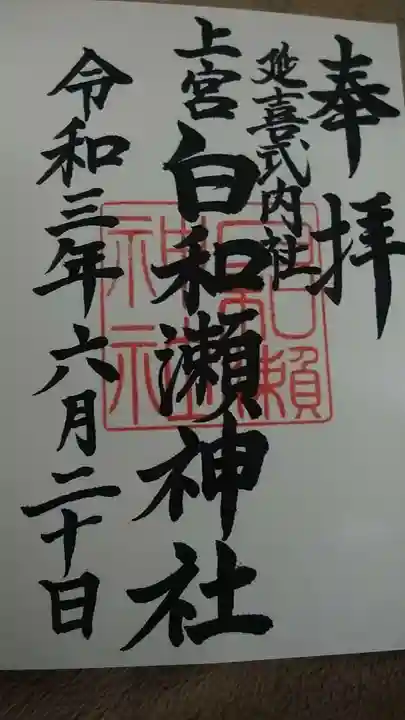 奉拝
延喜式内社
上宮 白和瀬神社
令和三年六月二十日